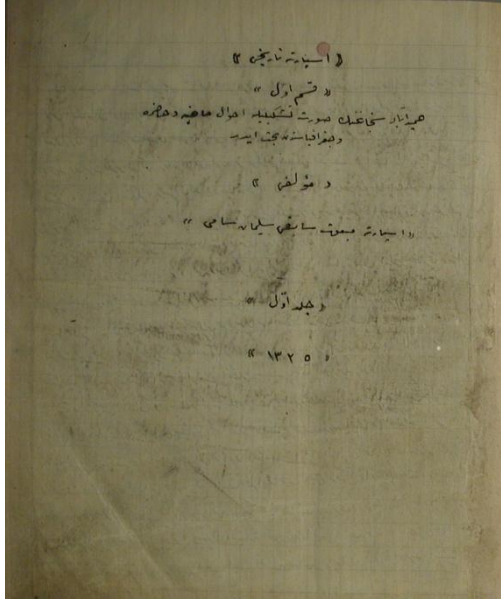 ﴿ اسپارته تاریخی ﴾
« قسم اول »
حمیدآباد سنجاغنك صورت تشکیلیله احوال ماضیه و حاضره
وجغرافیاسندن بحث ایدر
« مؤلفی »
« اسپارته مبعوث سابقی سلیمان سامی »
« جلد اول »
« ١٣٢٥ »